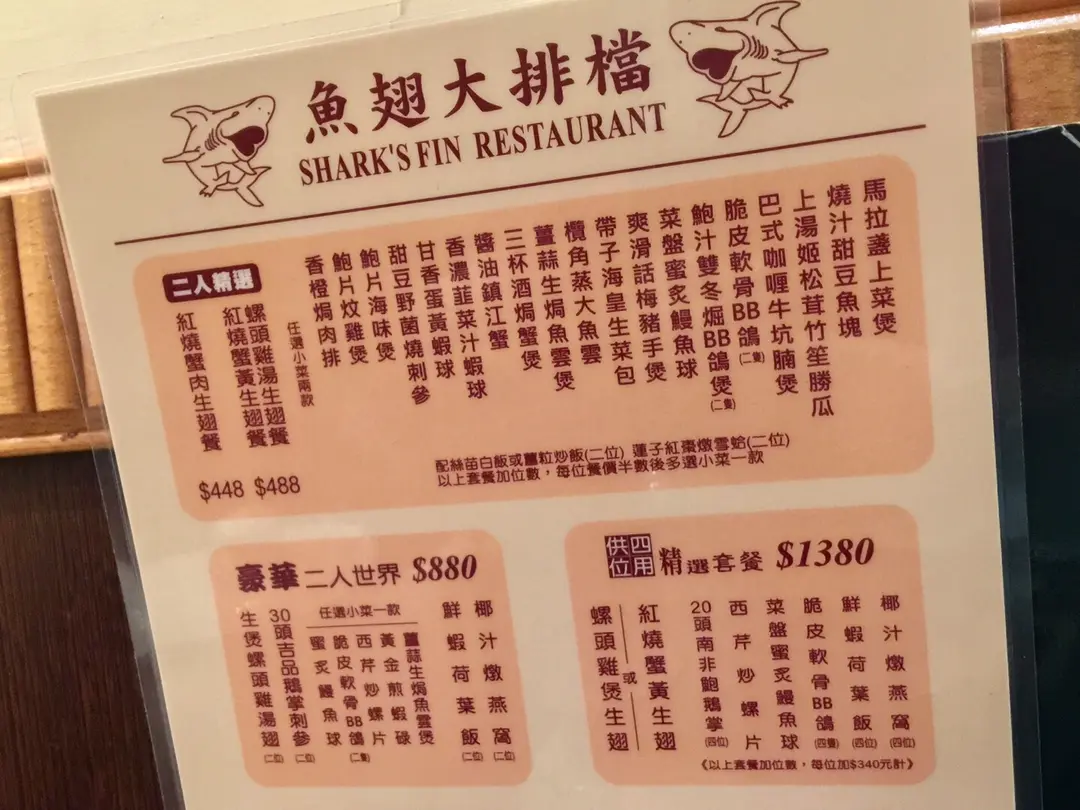 魚翅大排檔
SHARK'S FIN RESTAURANT
二人精選
紅燒蟹肉生翅餐
$448
紅燒蟹黃生翅餐
螺頭雞湯生翅餐
$488
任選小菜兩款
香橙焗肉排
鮑片炆雞煲
鮑片海味煲
甜豆野菌燒刺參
甘香蛋黃蝦球
香濃韮菜汁蝦球
醬油鎮江蟹
三杯酒焗蟹煲
薑蒜生焗魚雲煲
欖角蒸大魚雲
帶子海皇生菜包
爽滑話梅豬手煲
菜盤蜜炙鰻魚球
鮑汁雙冬焗BB鴿煲(二隻)
脆皮軟骨BB鴿(二隻)
巴式咖喱牛坑腩煲
上湯姬松茸竹笙勝瓜
燒汁甜豆魚塊
馬拉盞上菜煲
配絲苗白飯或薑粒炒飯(二位) 蓮子紅棗燉雪蛤(二位)
以上套餐加位數，每位餐價半數後多選小菜一款
豪華二人世界 $880
生煲螺頭雞湯翅(二位)
30頭吉品鵝掌刺參(二位)
任選小菜一款
蜜炙鰻魚球
脆皮軟骨BB鴿(二隻)
西芹炒螺片
黃金煎蝦碌
薑蒜生焗魚雲煲
鮮蝦荷葉飯(二位)
椰汁燉燕窩(二位)
供四位用精選套餐 $1380
螺頭雞煲生翅
或
紅燒蟹黃生翅
20頭南非鮑鵝掌(四位)
西芹炒螺片
菜盤蜜炙鰻魚球
脆皮軟骨BB鴿(四隻)
鮮蝦荷葉飯(四位)
椰汁燉燕窩(四位)
《以上套餐加位數，每位加$340元計》